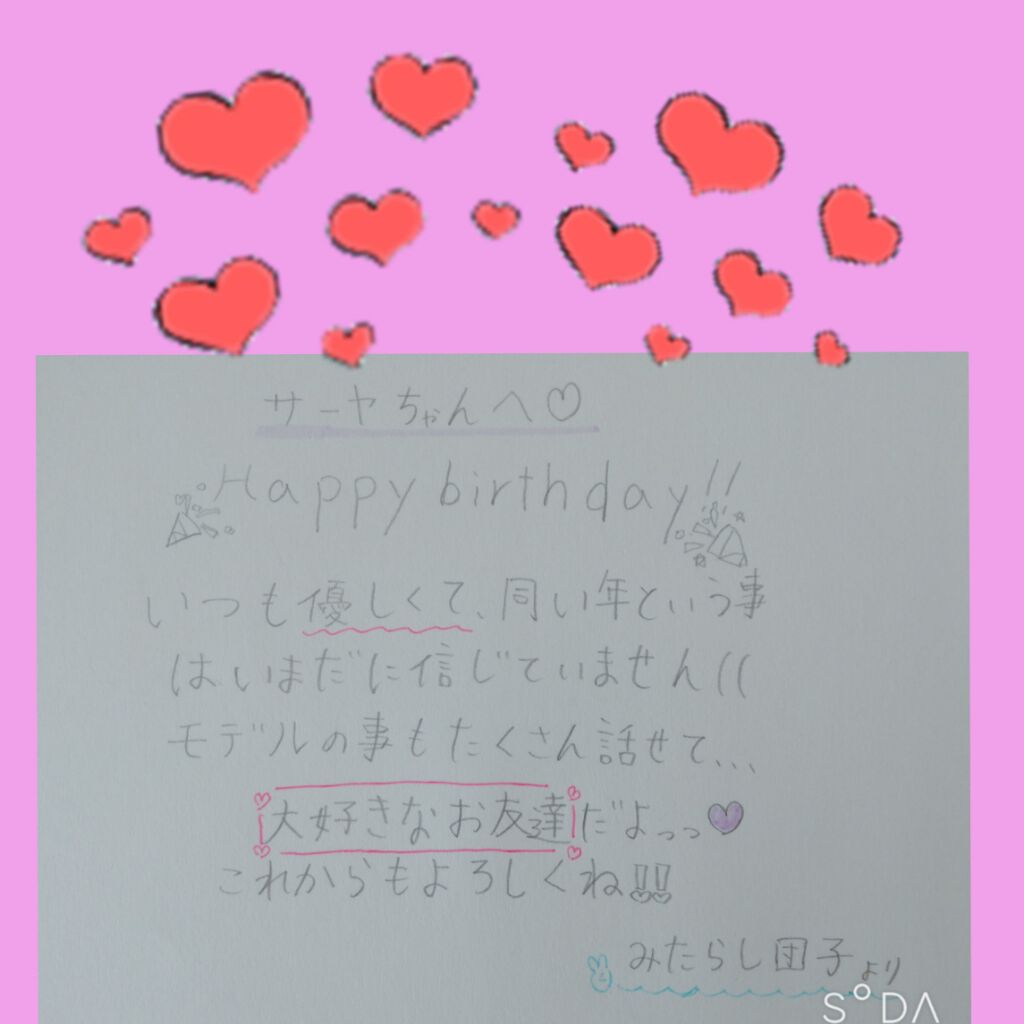 サーヤちゃんへ♡
Happy birthday!!
いつも優しくて、同い年という事
はいまだに信じていません((
モデルの事もたくさん話せて、、、
大好きなお友達だよっっ💜
これからもよろしくね!!
みたらし団子より
SODA